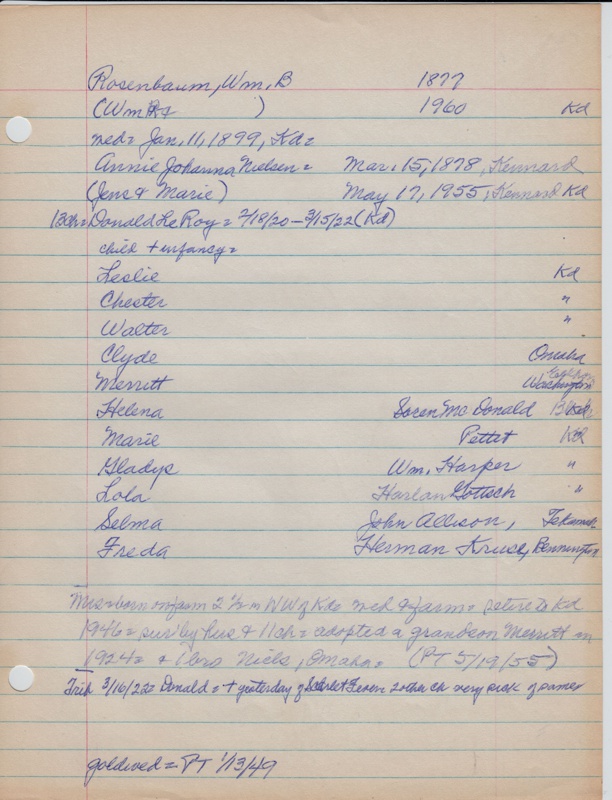 Rosenbaum, Wm, B 1877
(Wm ) 1960 Kd
wed= Jan, 11, 1899, Kd=
Annie Johanna Nielsen= Mar. 15, 1878, Kennard
(Jens & Marie) May 17, 1955, Kennard Kd
13ch= Donald Le Roy= 7/18/20 - 3/15/22 (Kd)
child + infancy=
Leslie Kd
Chester "
Walter "
Clyde Omaha
Merritt Washington
Helena Soren McDonald Kd
Marie Pettet Kd
Gladys Wm, Harper "
Lola Harlan Gottsch "
Selma John Allison, Tekamah
Freda Herman Kruse, Bennington
Mrs= born on farm 2 1/2 m NW of Kd= wed & farm= retire to Kd
1946= sur by hus & 11 ch= adopted a grandson Merritt in
1924= & 1 bro Niels, Omaha= (PT 5/19/55)
Trib 3/16/22= Donald= + yesterday of Scarlet Fever 2 other ch very sick of same
goldwed= PT 1/13/49